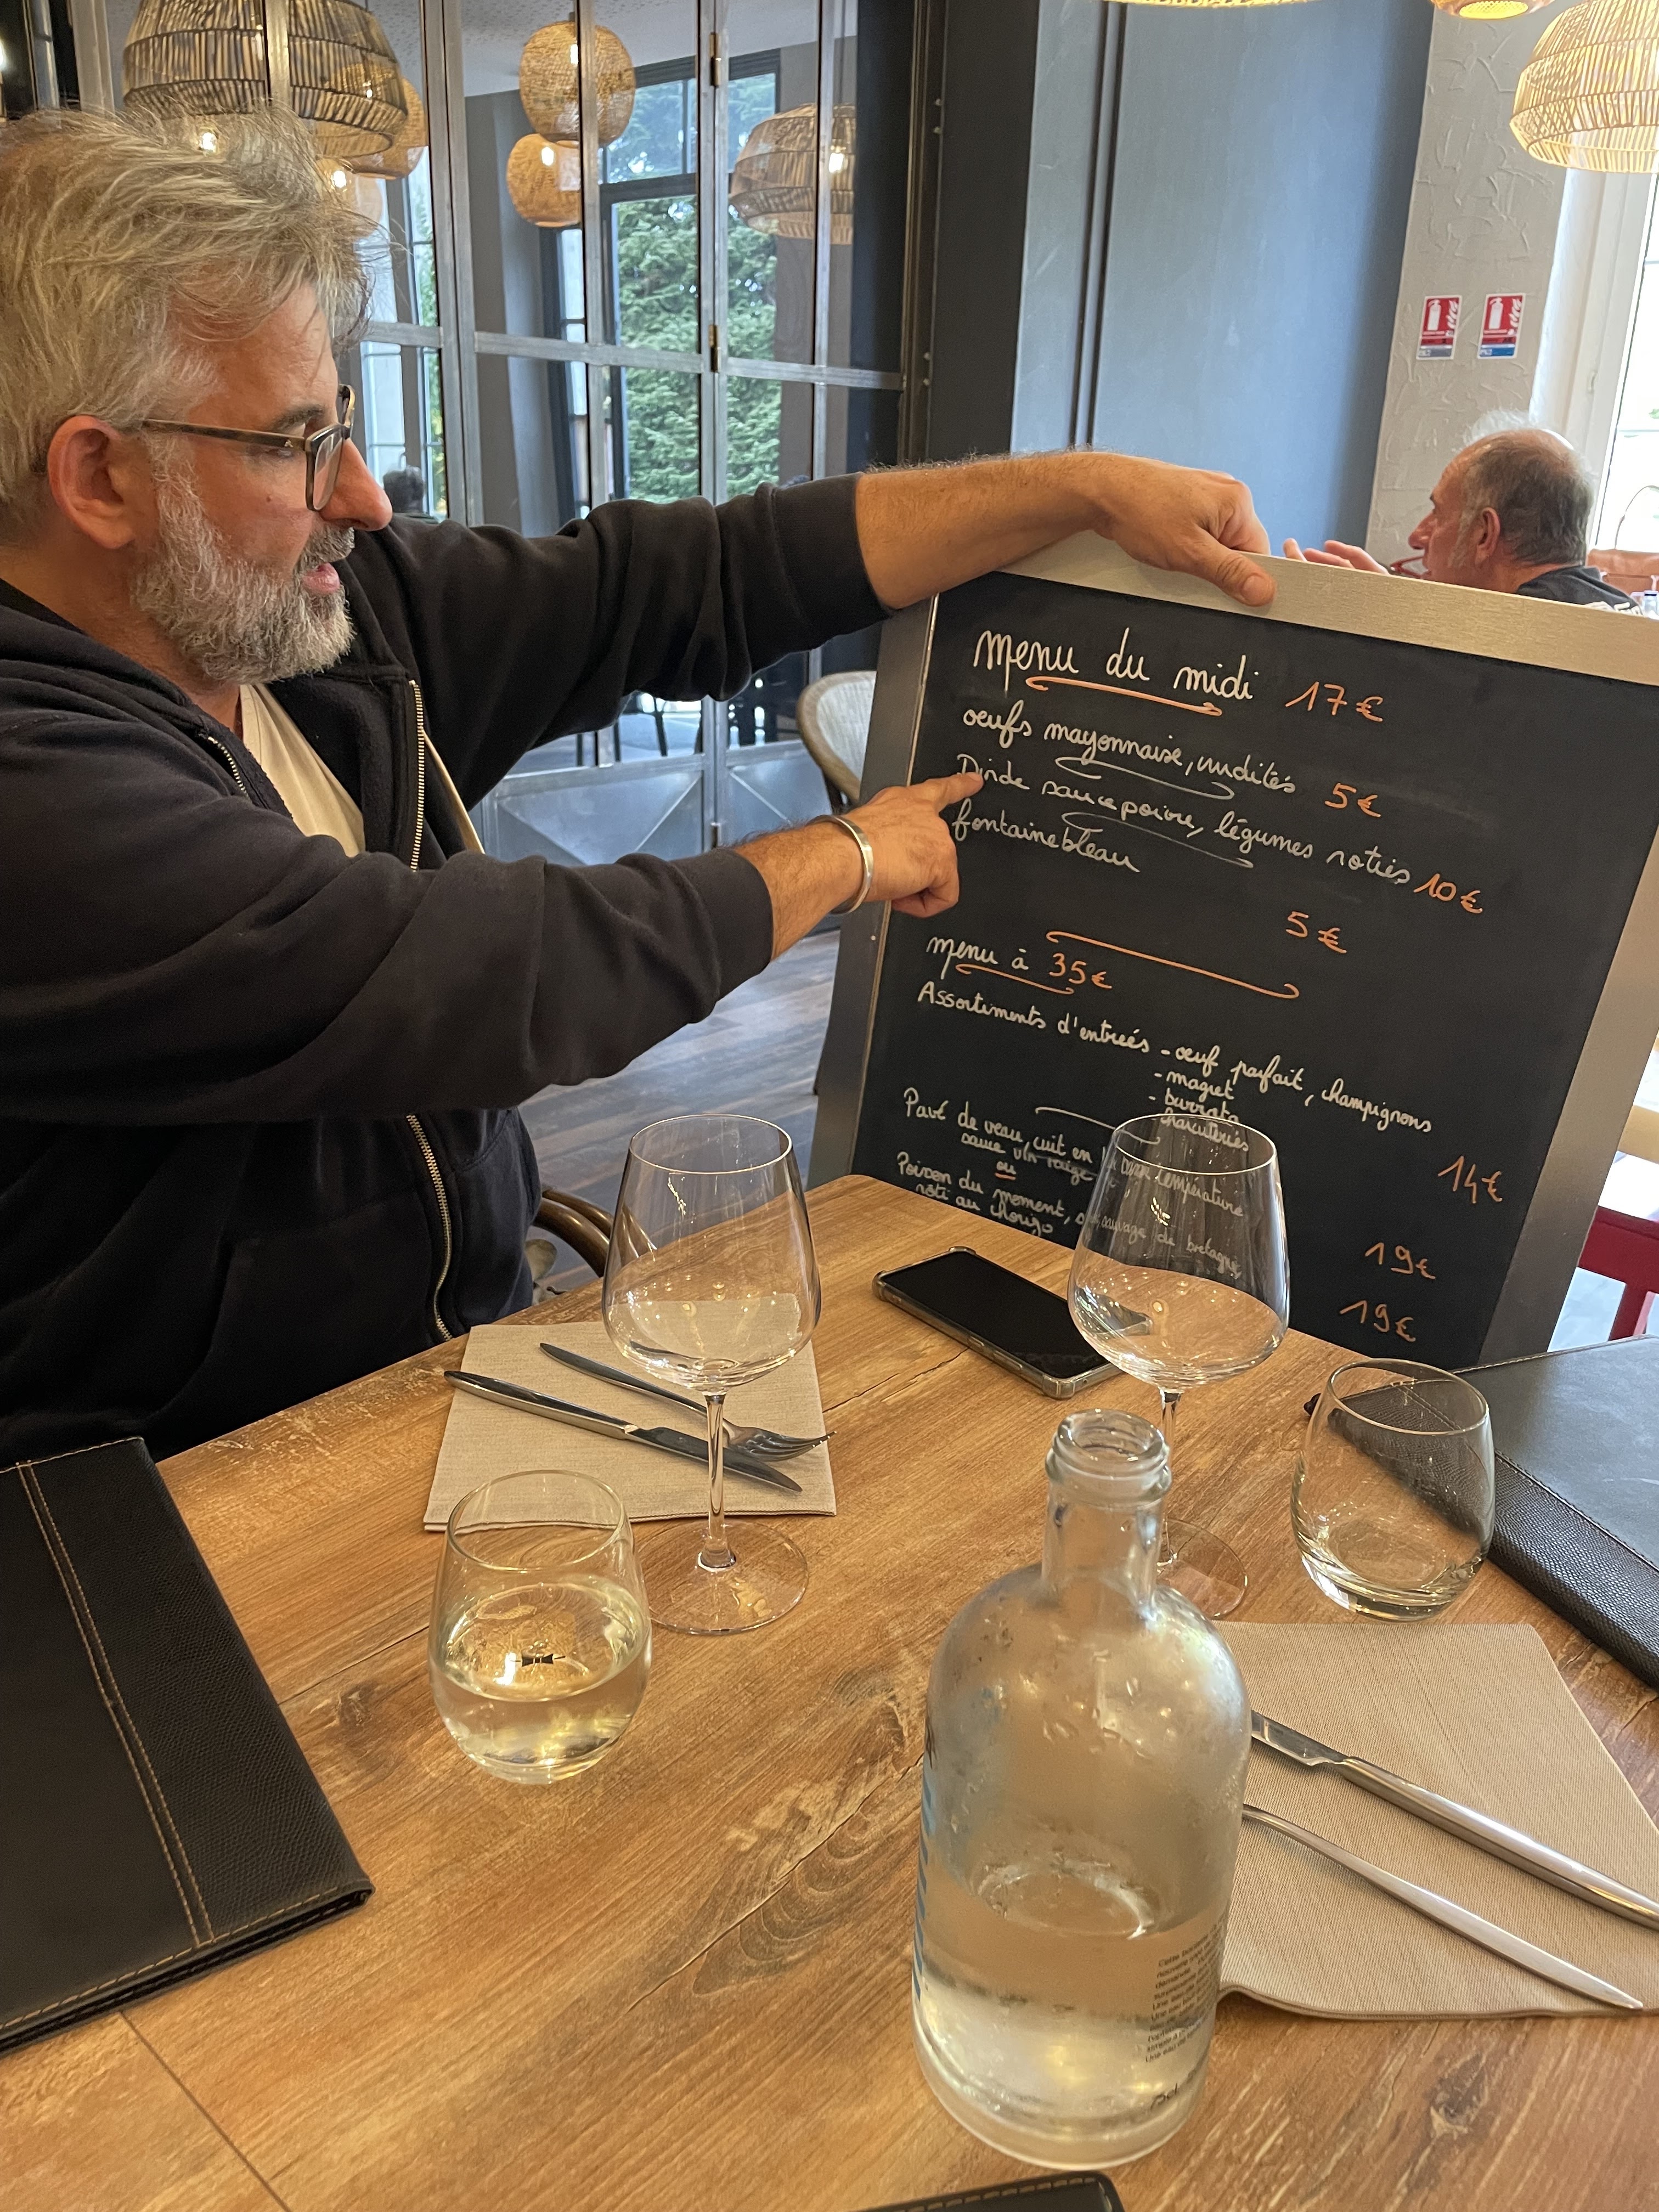 menu du midi 17€
oeufs mayonnaise, crudités 5€
Dinde sauce poivre, légumes rotiés 10€
fontainebleau
5€
menu à 35€
Assortiments d'entrées - oeuf parfait, champignons
- magret
- burrata
charcuteries
14€
Pavé de veau, cuit en basse température
sauce vin rouge
19€
ou
Poisson du moment, sauvage de bretagne
rôti au chorizo
19€